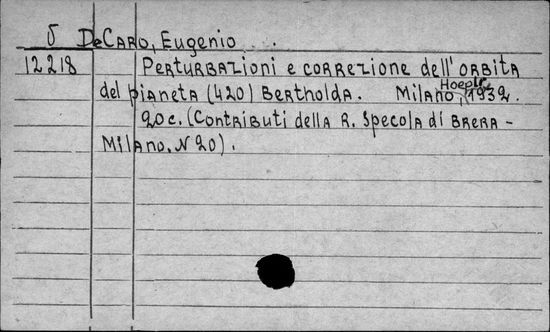 δ DeCARO, Eugenio
12218 Perturbazioni e correzione dell'orbita
del pianeta (420) Bertholda. Milano, Hoepli, 1932.
20 c. (Contributi della R. Specola di Brera -
Milano. N 20).